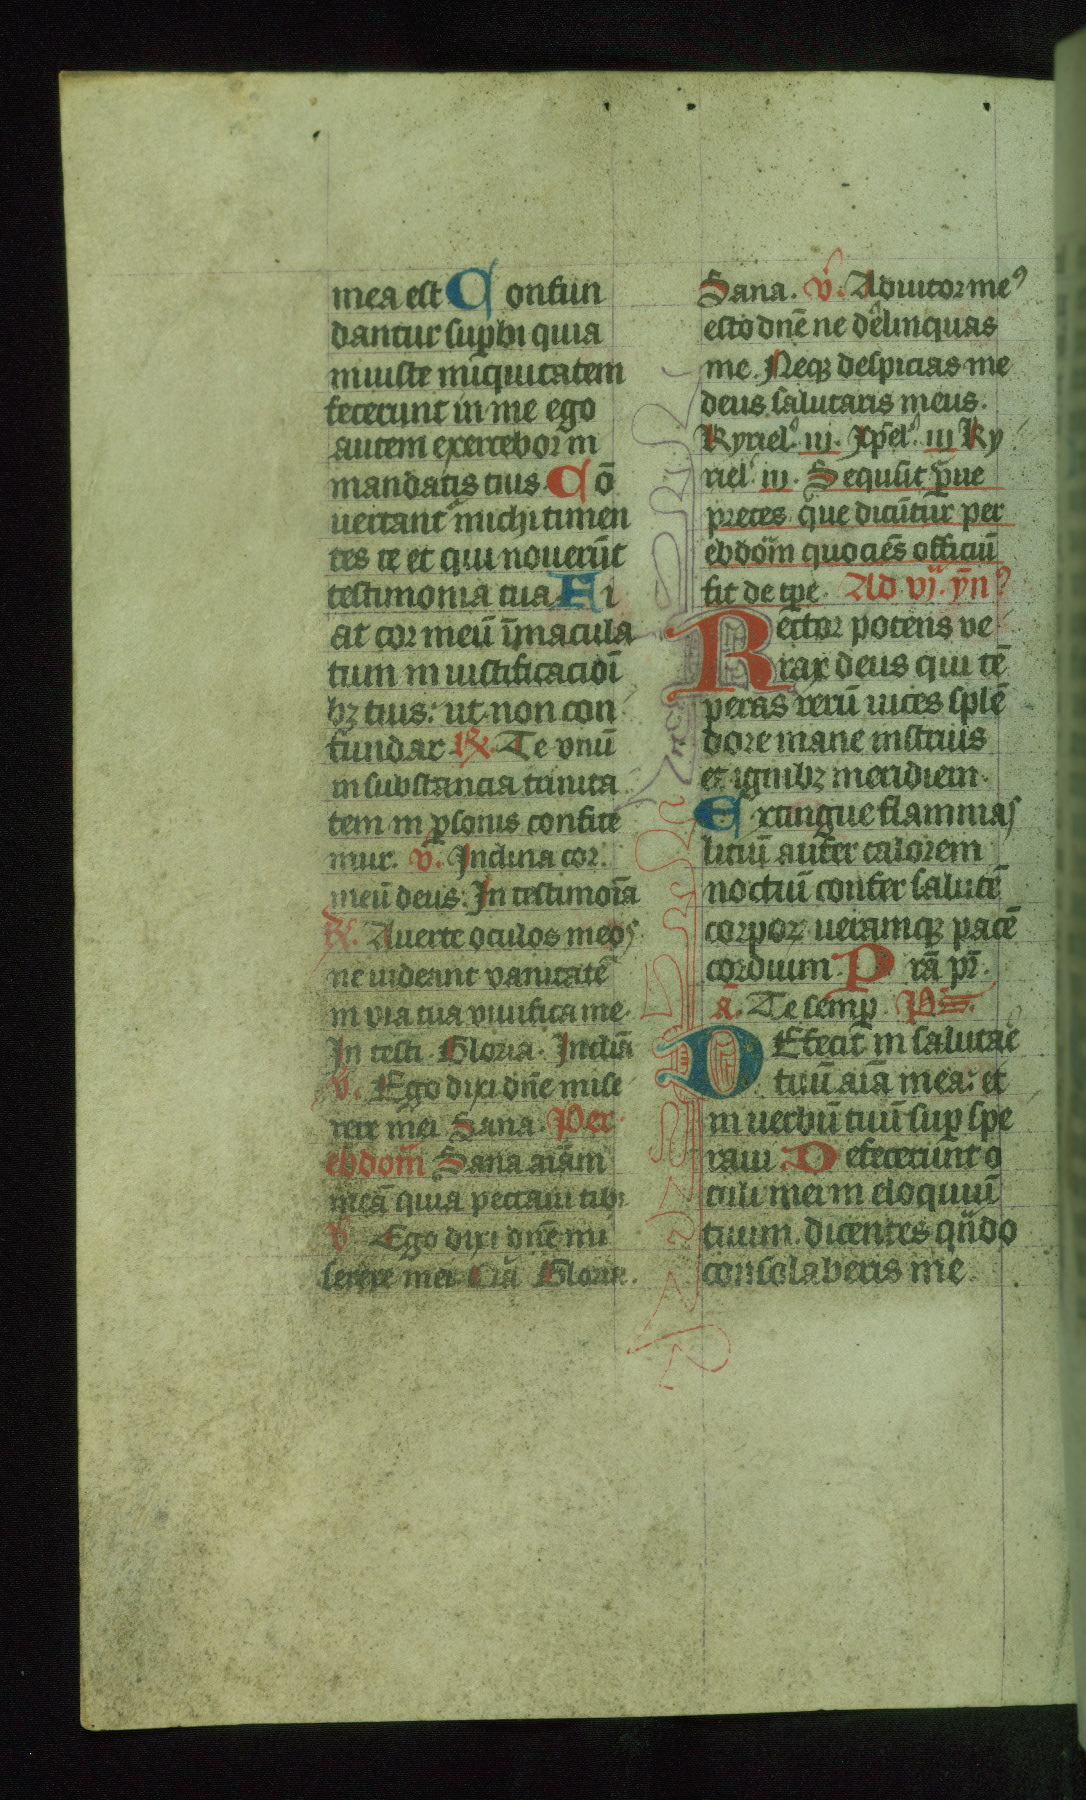 mea est Confun
dantur suꝑbi quia
iniuste iniquitatem
fecerunt in me ego
autem exercebor in
mandatis tuis Cō
uertant michi timen
tes te et qui nouerūt
testimonia tua Fi
at cor meū īmacula
tum in iustificacioī
bꝫ tuis: ut non con
fundar ℟. Te vnū
in substancia trinita
tem in ꝑsonis confite
mur. v̄. Inclina cor.
meū deus: In testimoīa
℟. Auerte oculos meos
ne uideant vanitatē
in via tua viuifica me.
In testi. Gloria. Inclīa
v̄. Ego dixi dn̄e mise
rere mei Sana. Per
ebdom̄ Sana aīam
meā quia peccaui tibi
v̄ Ego dixi dn̄e mi
serere mei Gloria.
Sana. v̄. Adiutor meꝰ
esto dn̄e ne delinquas
me. Neqꝫ despicias me
deus salutaris meus.
Kyriel' iij. Xp̄el' iij Ky
riel' iij. Sequūt p̄ue
preces que dicūtur per
ebdom̄ quociēs officiū
fit de tp̄e. Ad vj. ym̄ꝰ
Rector potens ve
rax deus qui tē
peras rerū uices splē
dore mane instruis
et ignibꝫ meridiem.
Extingue flammas
litiū aufer calorem
noctiū confer salutē
corpoꝝ ueramqꝫ pacē
cordium. Prā pr̄.
a. Te semꝑ. Ps
Defecit in salutare
tuū aīa mea: et
in uerbū tuū suꝑ spe
raui. Defecerunt o
culi mei in eloquiū
tuum. dicentes qn̄do
consolaberis me